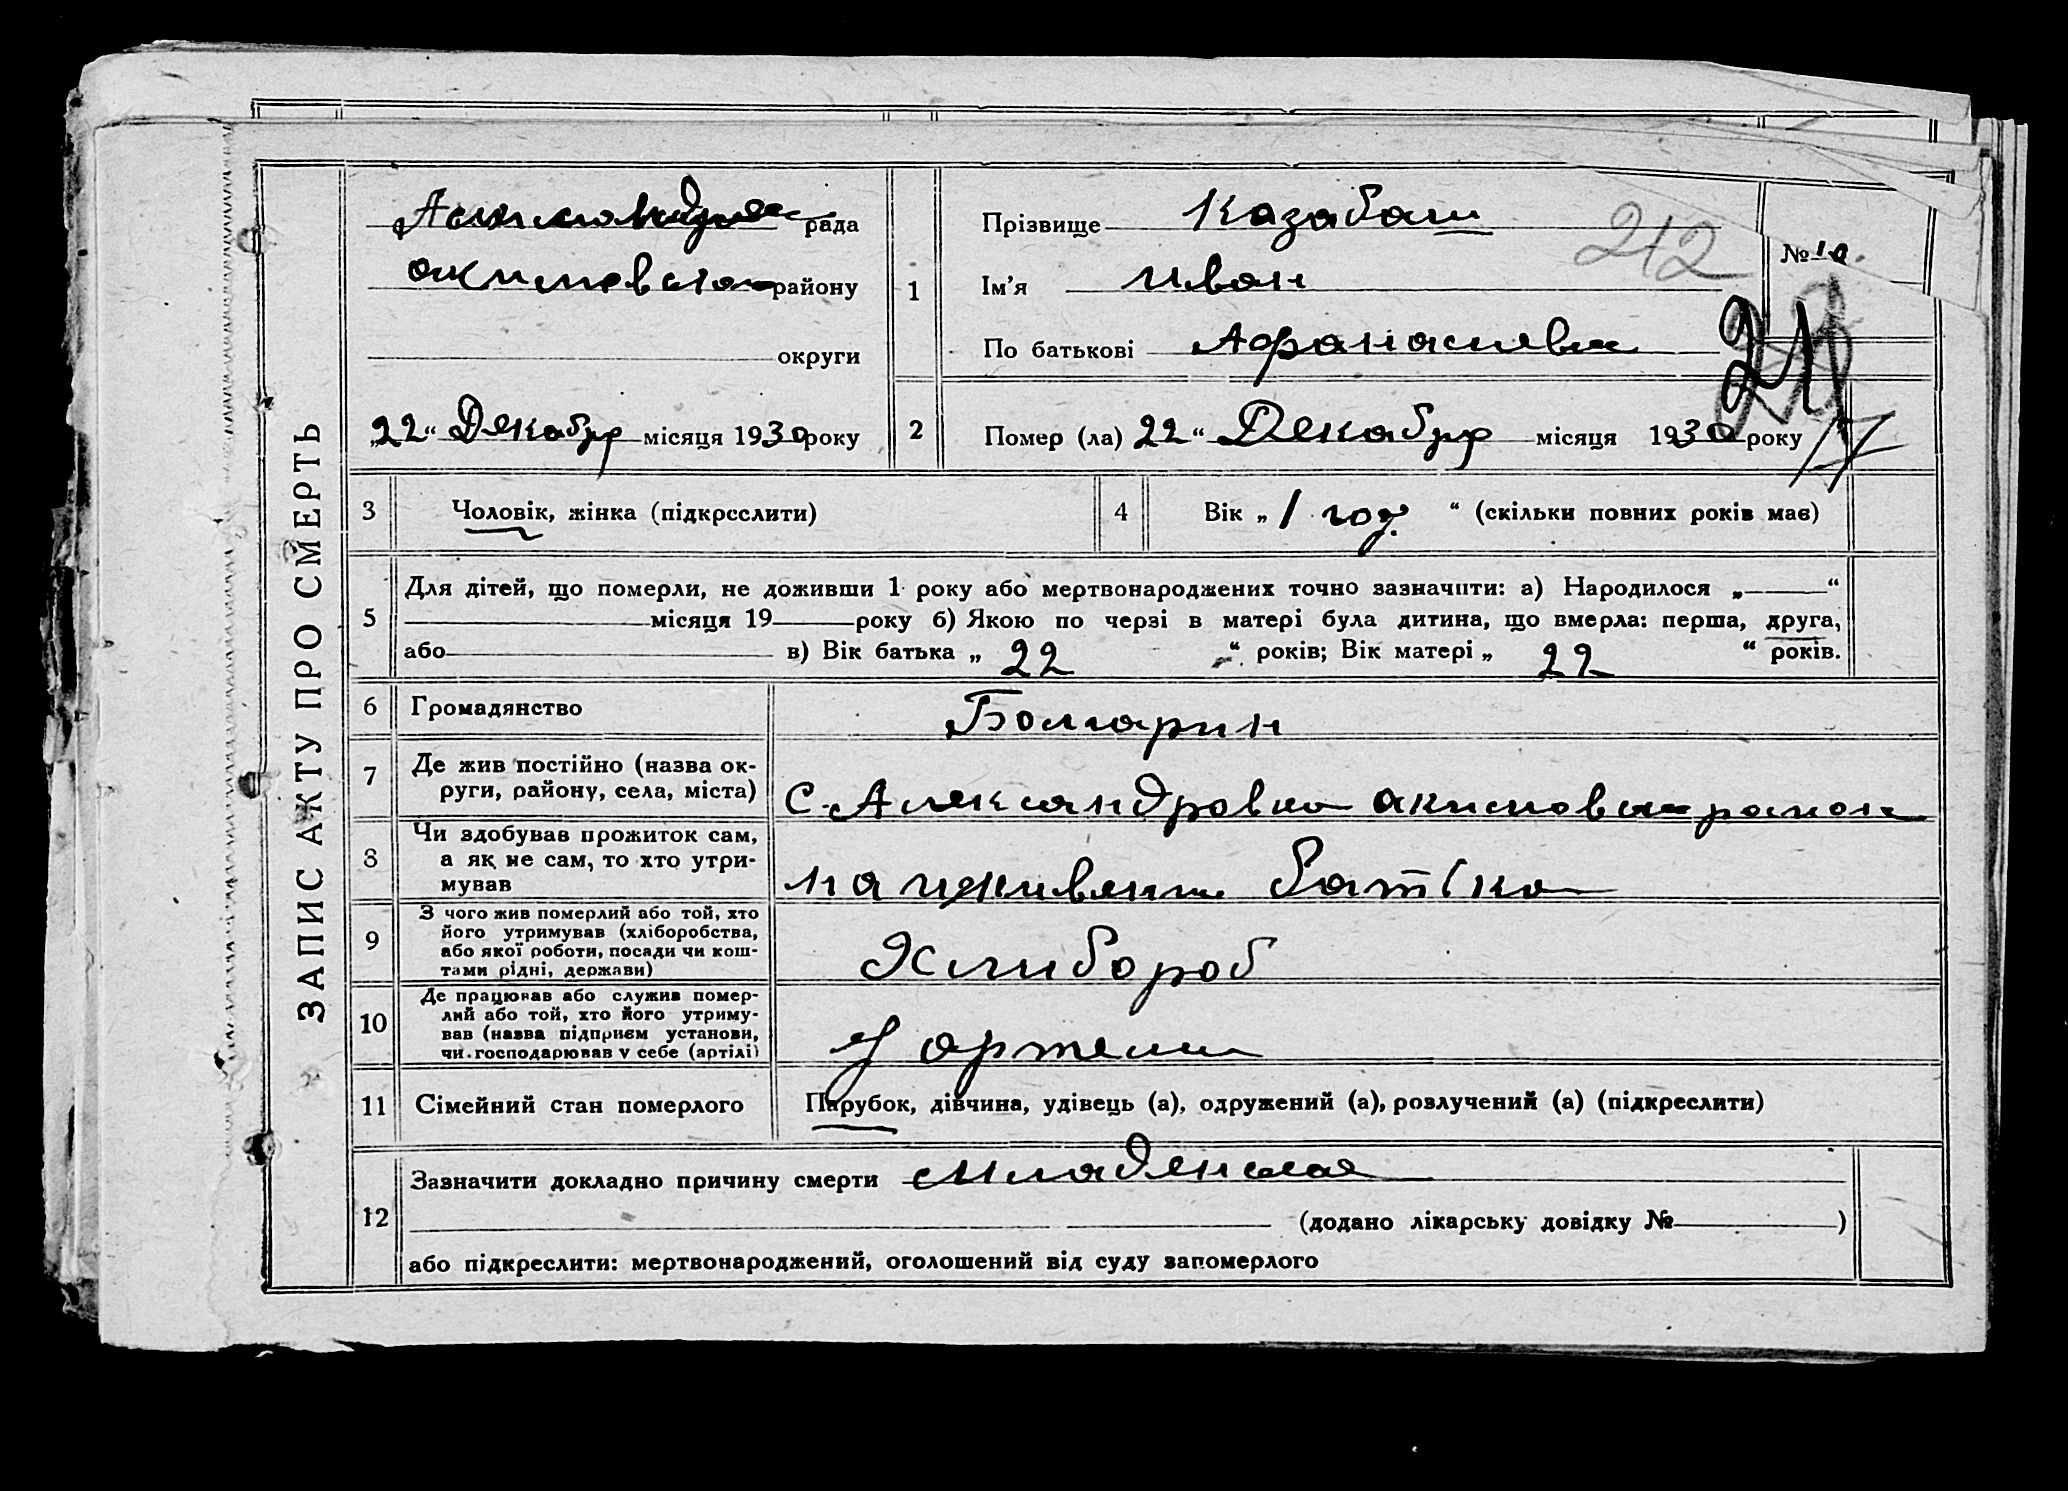 ЗАПИС АКТУ ПРО СМЕРТЬ
рада
району
округи
„22“ Декабр місяця 1930 року
1
Прізвище Казабаш
Ім'я Иван
По батькові Афанасиев
212
№ 10.
2
Помер (ла) 22“ Декабр місяця 1930 року 17
3
Чоловік, жінка (підкреслити)
4
Вік „ 1 год. “ (скільки повних років має)
5
Для дітей, що померли, не доживши 1 року або мертвонароджених точно зазначити: а) Народилося „ “
місяця 19 року б) Якою по черзі в матері була дитина, що вмерла: перша, друга,
або в) Вік батька „ 22 “ років; Вік матері „ 22 “ років.
6
Громадянство
Болгарин
7
Де жив постійно (назва ок-
руги, району, села, міста)
с. Александровка акимовск район
8
Чи здобував прожиток сам,
а як не сам, то хто утри-
мував
на иживени батька
9
З чого жив померлий або той, хто
його утримував (хліборобства,
або якої роботи, посади чи кош-
тами рідні, держави)
Хлибороб
10
Де працював або служив помер-
лий або той, хто його утриму-
вав (назва підприєм установи,
чи господарював у себе (артілі)
У артели
11
Сімейний стан померлого
Парубок, дівчина, удівець (а), одружений (а), розлучений (а) (підкреслити)
12
Зазначити докладно причину смерти Младенская
(додано лікарську довідку № )
або підкреслити: мертвонароджений, оголошений від суду запомерлого